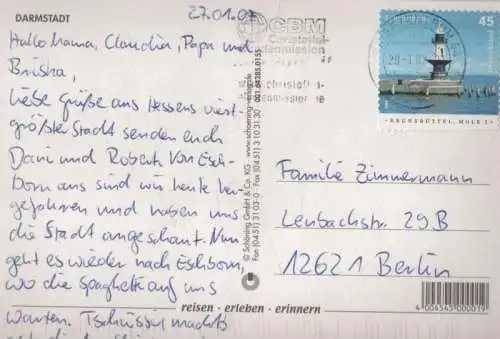 DARMSTADT
27.01.0
Hallo Mama, Claudia, Papa und
Briska,
liebe Grüße aus Hessens viert-
größter Stadt senden euch
Dani und Robert. Von Esch-
born aus sind wir heute her-
gefahren und haben uns
die Stadt angeschaut. Nun
geht es wieder nach Eschborn,
wo die Spaghetti auf uns
warten. Tschüssi machts
© Schöning GmbH & Co. KG · www.schoening-verlag.de
Fax (0451) 31 03-0 · Fax (0451) 3 10 31 30
CBM
Christoffel-
Blindenmission
www.christoffel-
blindenmission.de
45
BRUNSBÜTTEL, MOLE 1
Familie Zimmermann
Lenbachstr. 29B
12621 Berlin
4 004545 000019
reisen · erleben · erinnern